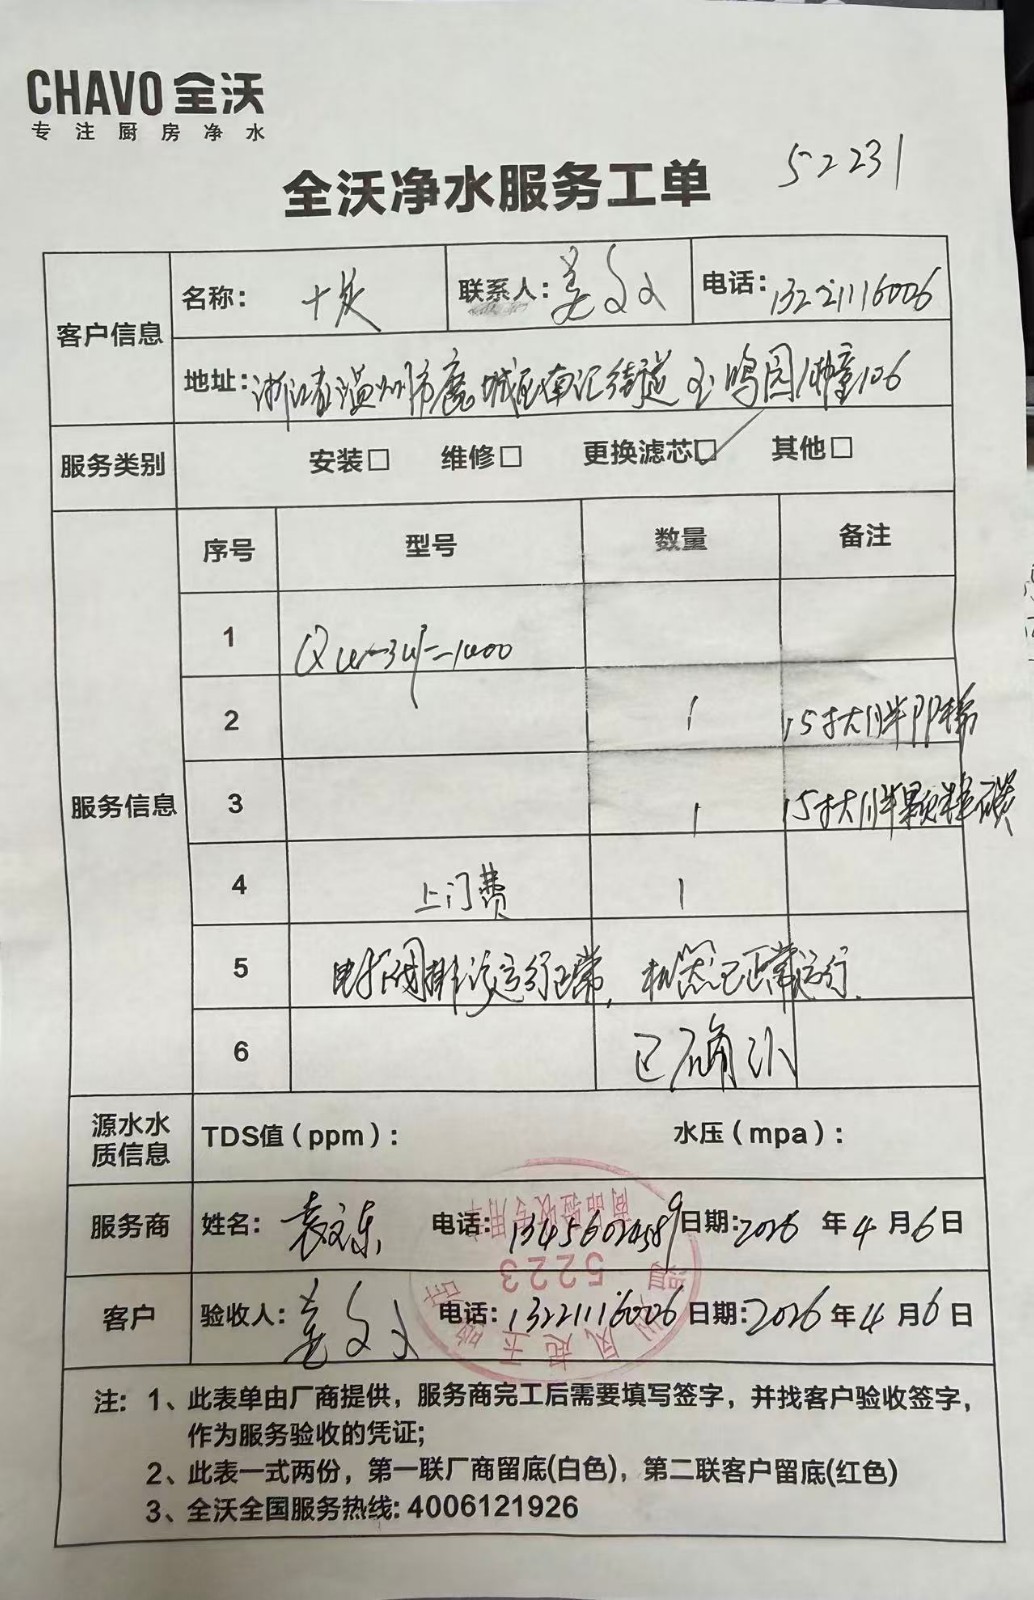 CHAVO 全沃
专注厨房净水
52231
全沃净水服务工单
客户信息
名称: 十灰
联系人: 姜
电话: 13221116006
地址: 浙江省温州市鹿城区南汇街道玉鸣园1幢106
服务类别
安装□ 维修□ 更换滤芯☑ 其他□
服务信息
序号 型号 数量 备注
1
2 1 15寸大胖PP棉
3 1 15寸大胖颗粒碳
4 上门费 1
5 电极阀排污运行正常,机器已正常运行.
6 已确认
源水水质信息
TDS值（ppm）: 水压（mpa）:
服务商 姓名: 袁文东 电话: 日期: 2026年4月6日
客户 验收人: 姜 电话: 13221116006 日期: 2026年4月6日
商品验收专用章
5223
注: 1、此表单由厂商提供，服务商完工后需要填写签字，并找客户验收签字，
作为服务验收的凭证;
2、此表一式两份，第一联厂商留底(白色)，第二联客户留底(红色)
3、全沃全国服务热线: 4006121926